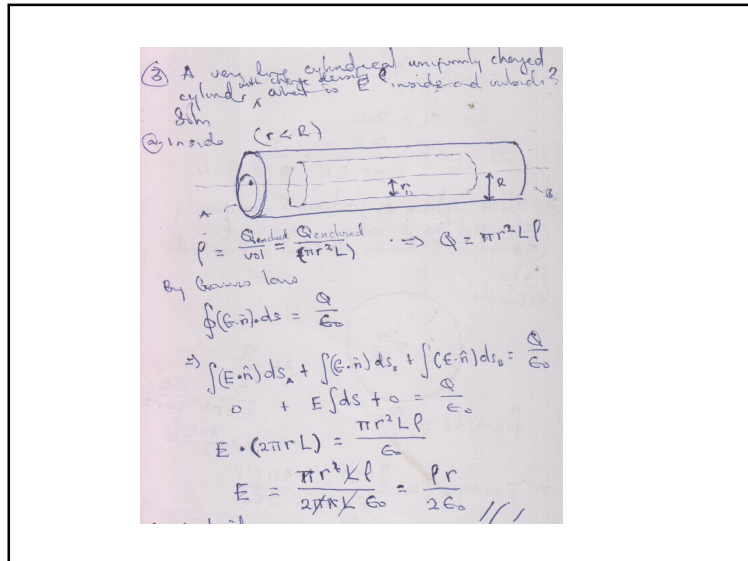 ③ A very long cylindrical uniformly charged
cylinder, with charge density ρ what is E inside and outside?
Soln
ⓐ Inside (r < R)
r R
A B
ρ = Qenclosed/vol = Qenclosed/(πr²L) ⇒ Q = πr²Lρ
By Gauss law
∮(E·n̂)·ds = Q/ε₀
⇒ ∫(E·n̂)ds_A + ∫(E·n̂)ds_s + ∫(E·n̂)ds_B = Q/ε₀
0 + E∫ds + 0 = Q/ε₀
E·(2πrL) = πr²Lρ/ε₀
E = πr²Lρ/2πrLε₀ = ρr/2ε₀